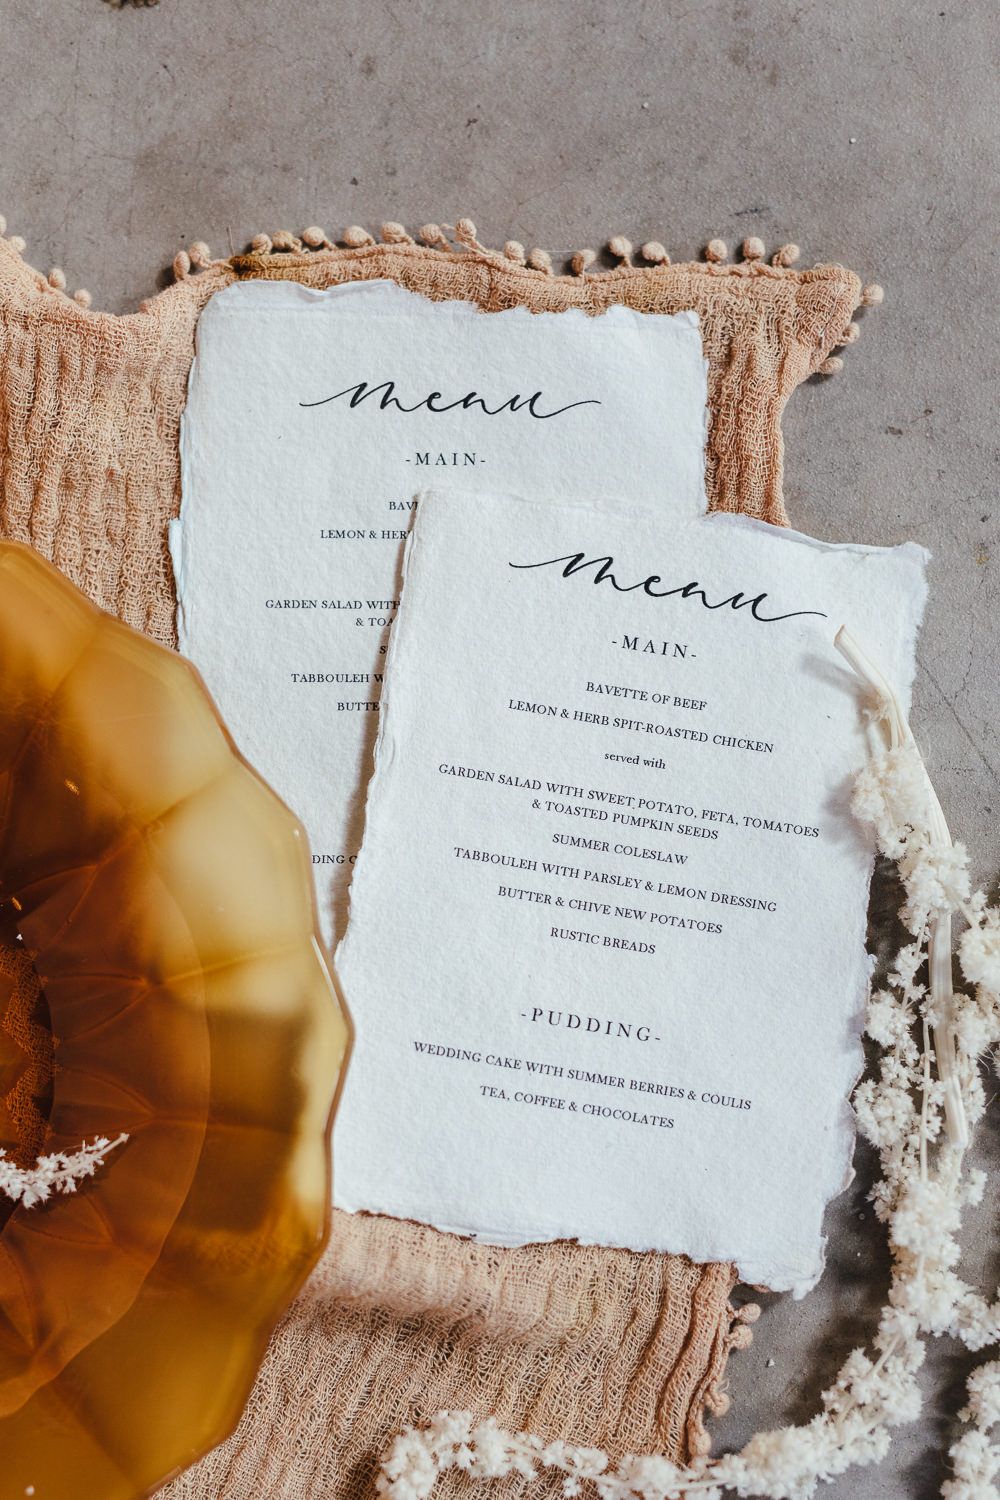 menu
-MAIN-
LEMON &
GARDEN SALAD WITH
&
TABBOULEH
menu
-MAIN-
BAVETTE OF BEEF
LEMON & HERB SPIT-ROASTED CHICKEN
served with
GARDEN SALAD WITH SWEET POTATO, FETA, TOMATOES
& TOASTED PUMPKIN SEEDS
SUMMER COLESLAW
TABBOULEH WITH PARSLEY & LEMON DRESSING
BUTTER & CHIVE NEW POTATOES
RUSTIC BREADS
-PUDDING-
WEDDING CAKE WITH SUMMER BERRIES & COULIS
TEA, COFFEE & CHOCOLATES